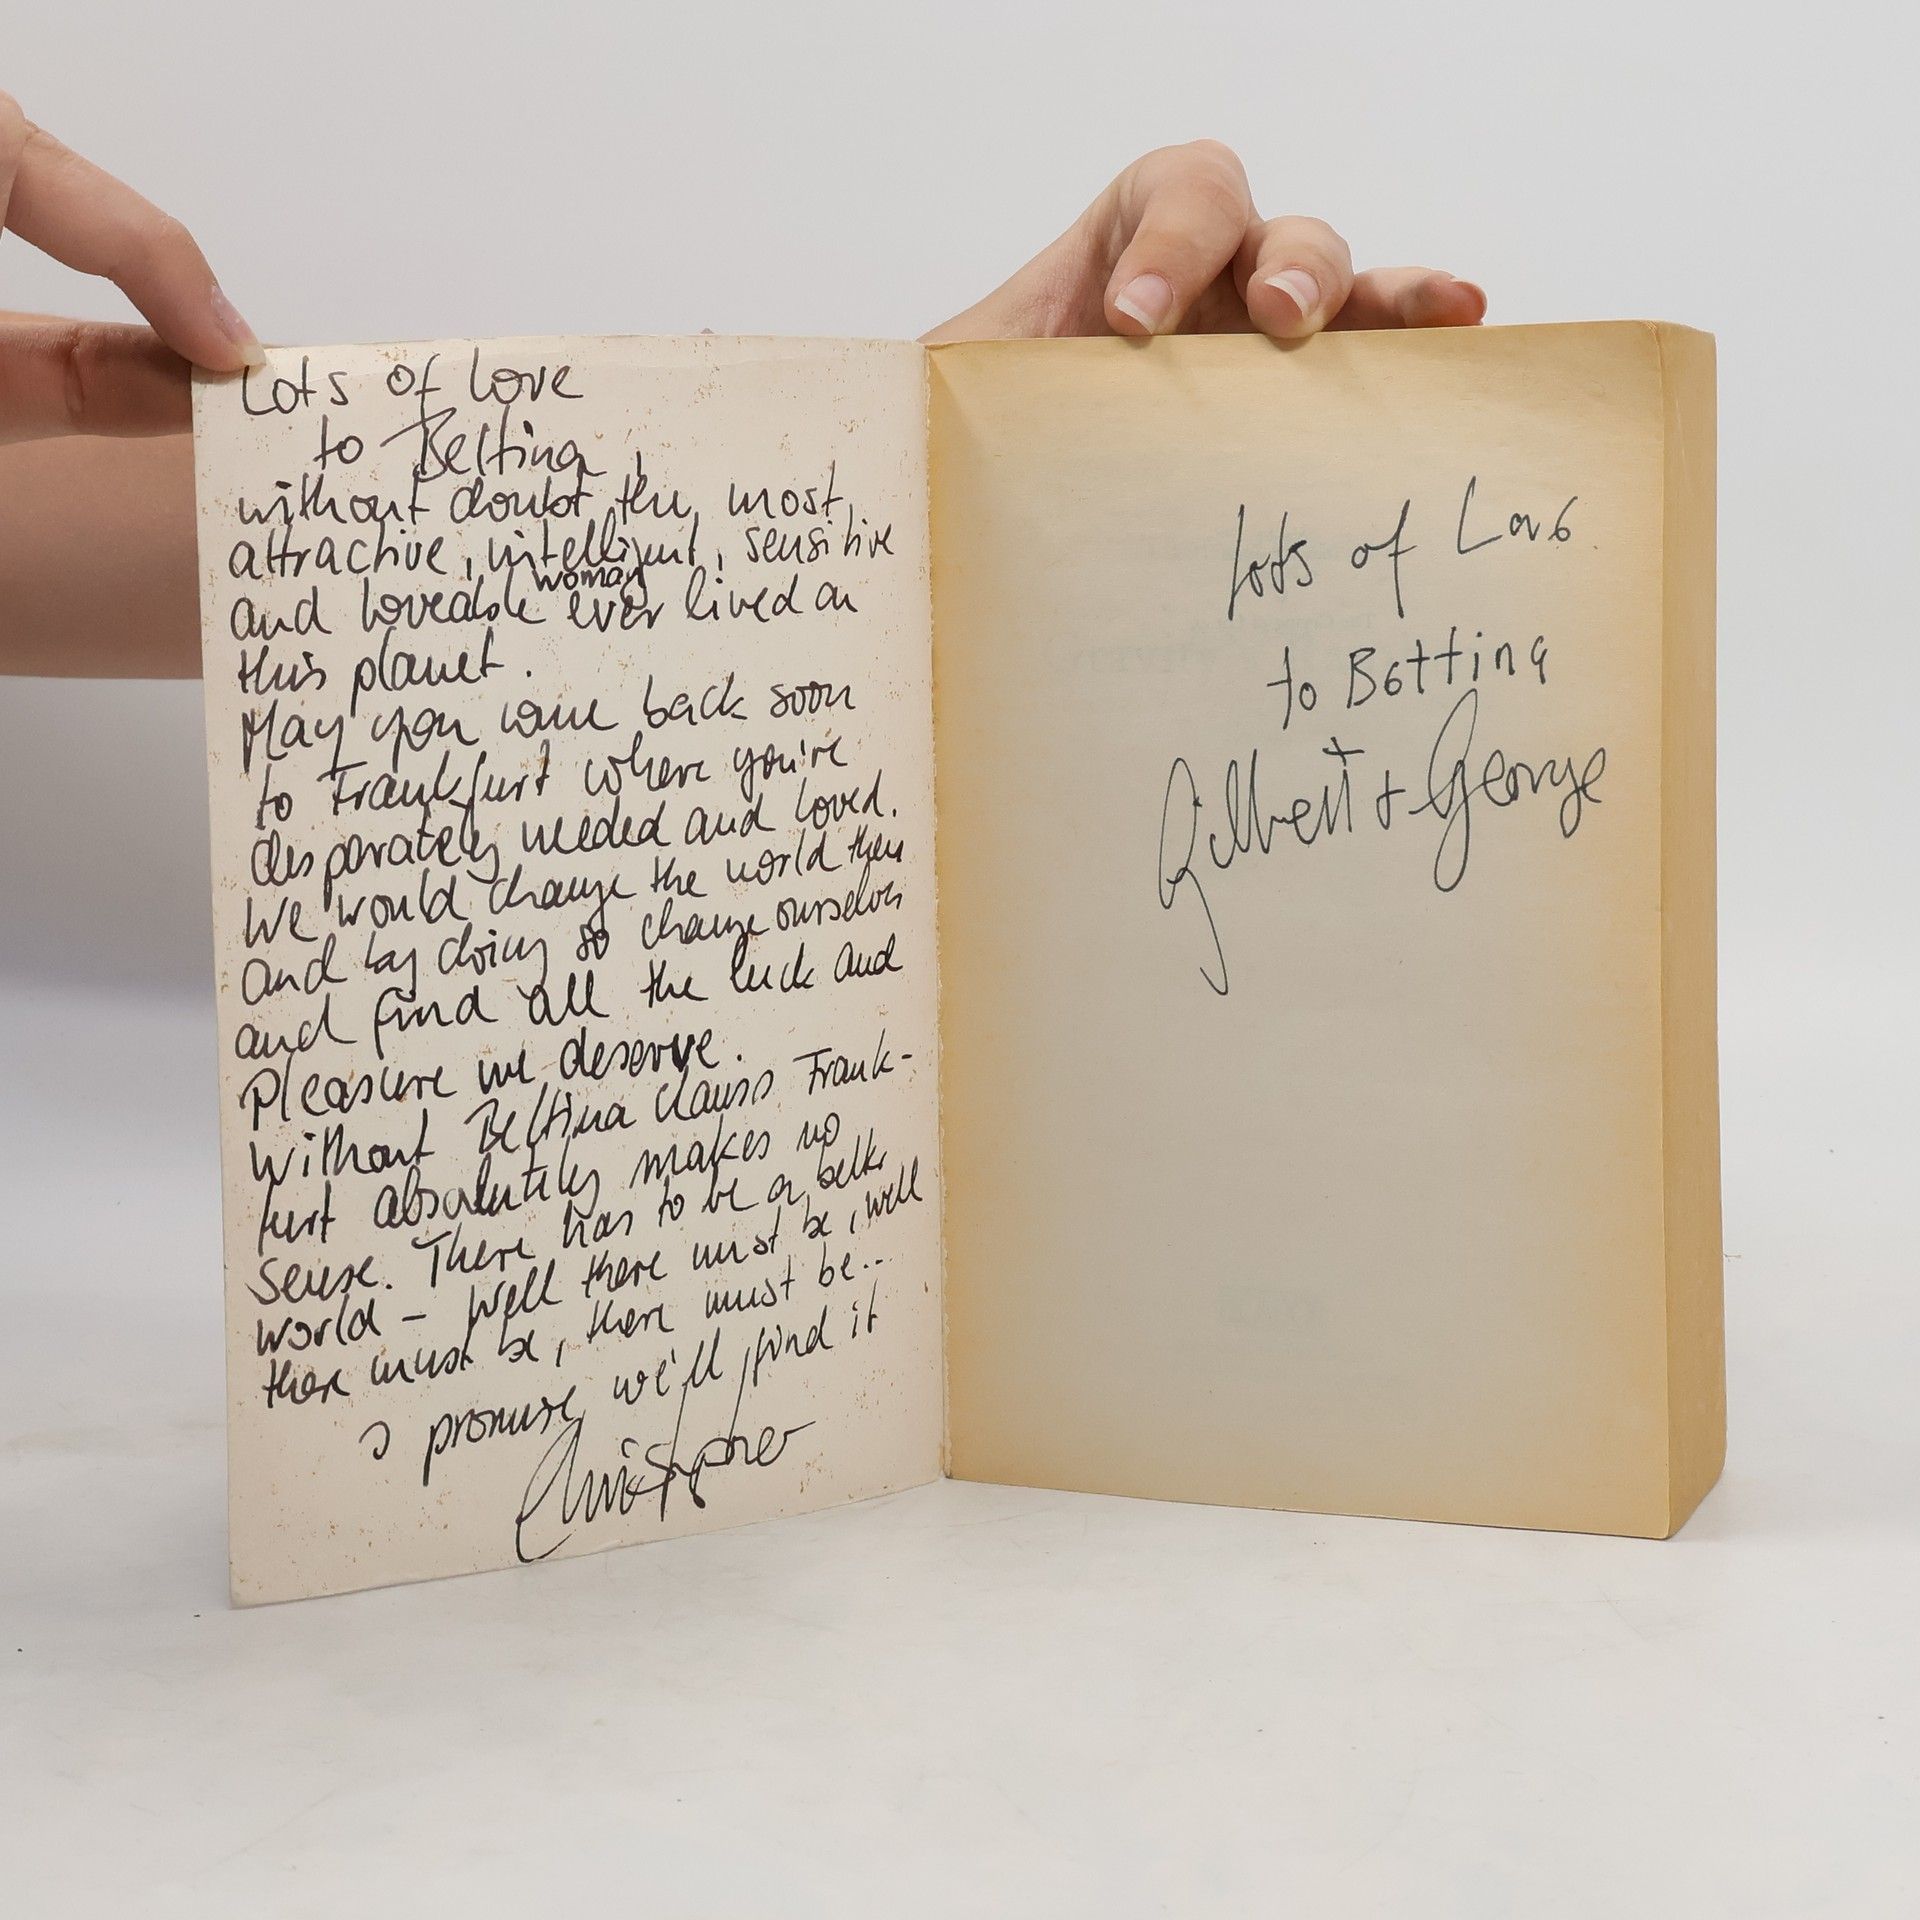 Lots of love
to Bettina,
without doubt the most
attractive, intelligent, sensitive
woman
and loveable ever lived on
this planet.
May you come back soon
to Frankfurt where you're
desperately needed and loved.
We would change the world then
and by doing so change ourselves
and find all the luck and
Pleasure we deserve.
Without Bettina Clauss Frank-
furt absolutely makes no
Sense. There has to be a better
world - well there must be, well
there must be, there must be..
I promise we'll find it
Christopher
Lots of Love
to Bettina
Gilbert + George